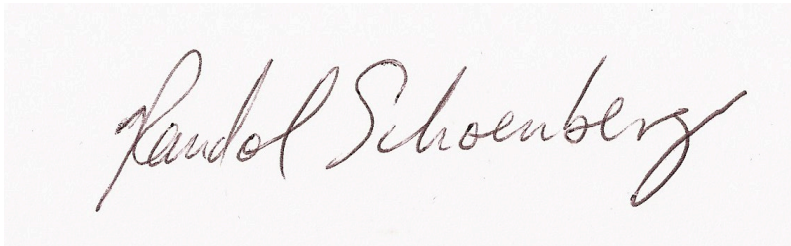 Randol Schoenberg